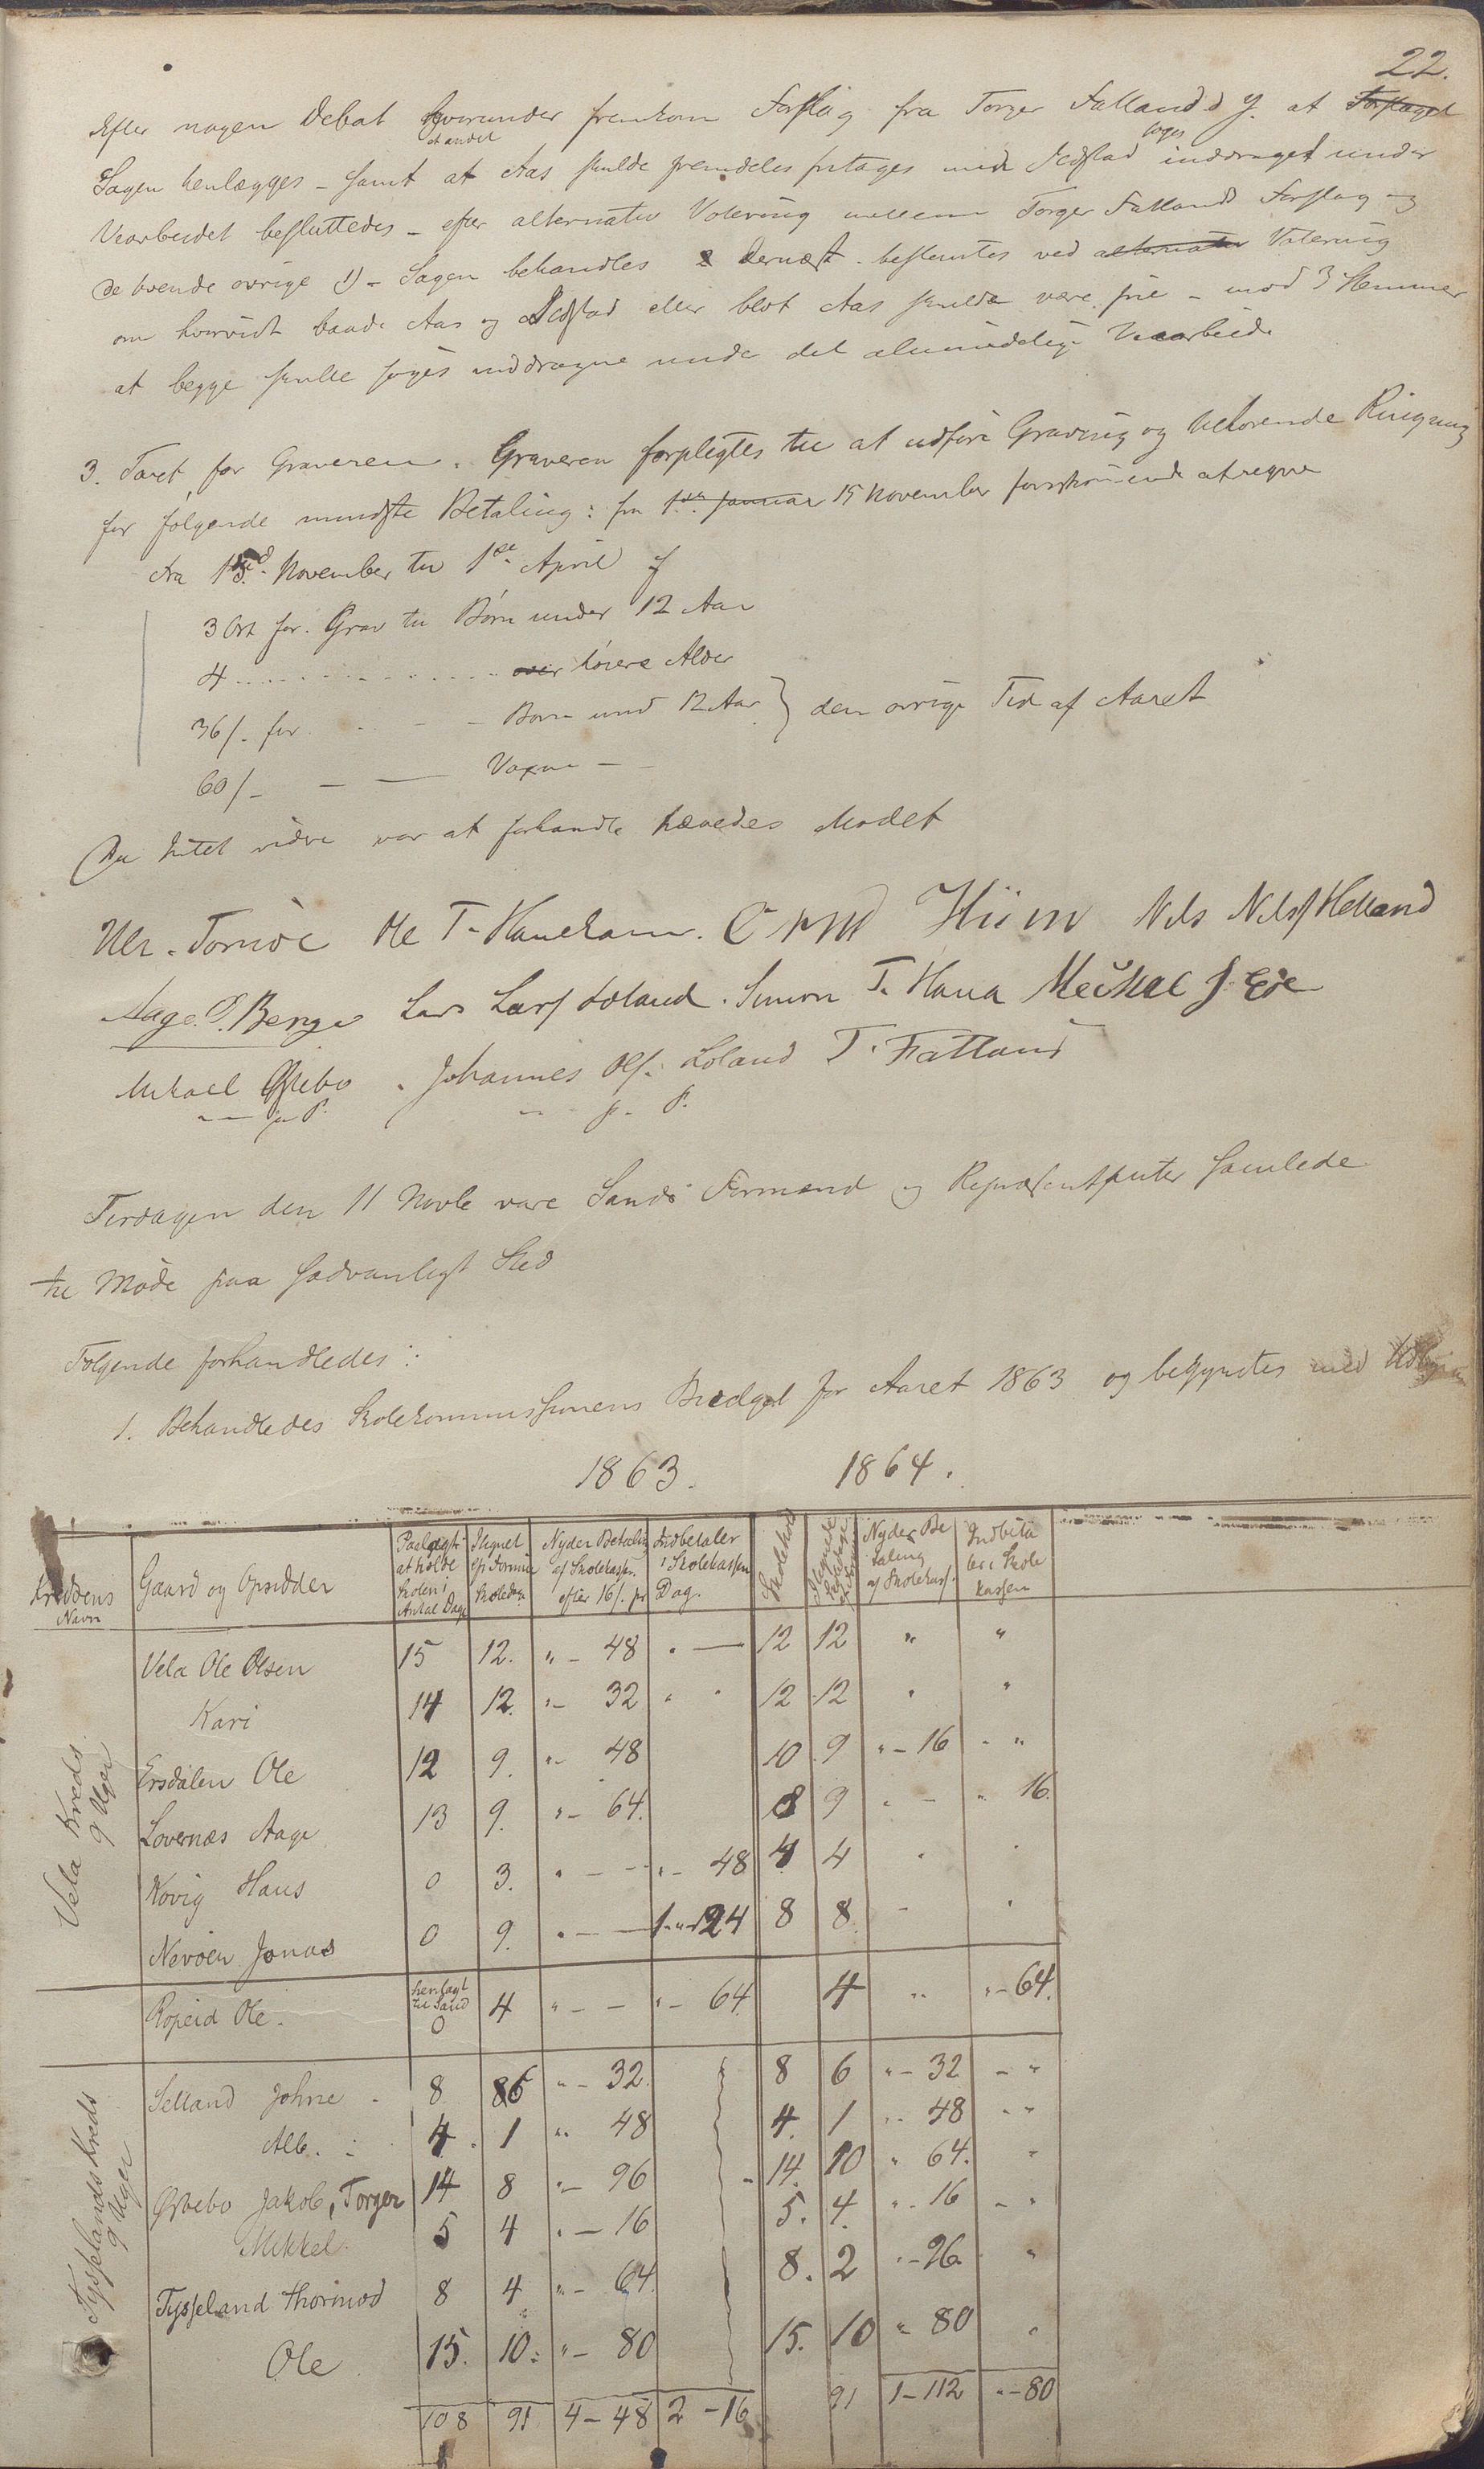 22.
Efter nogen Debat hvorunder fremkom Forslag fra Torger Fatland d y. at Forslaget
et andet søges
Sagen henlægges - samt at Aas skulde fremdeles fritages men Jedstad inddraget under
Veiarbeidet besluttedes - efter alternativ Votering mellem Torger Fatlands Forslag og
de tvende øvrige 1) - Sagen behandles 2 dernæst bestemtes ved alternativ Votering
om hvorvidt baade Aas og Jedstad eller blot Aas skulde være frie - mod 3 Stemmer
at begge skulle søges inddragne under det almindelige Veiarbeide
3. Taxt for Graveren. Graveren forpligtes til at udføre Graving og vedkommende Ringning
for følgende mindste Betaling: fra 1ste Januar 15 November førstkommende at regne
Fra 15d November til 1ste April
3 Ort for Grav til Børn under 12 Aar
4 over høiere Alder
36/- for - - Børn und 12 Aar } den øvrige Tid af Aaret
60/- - - Voxne -
Da Intet videre var at forhandle hævedes Mødet
Ulr. Tornøe Ole T. Hauekam. Hiim Nils Nilss Helland
Aage O. Berge Lars Larss Løland. Simon T. Hana Meckal J Eie
Mikael Østebø. Johannes Ols. Løland T. Fatland
— p. P. — p. P.
Tirsdagen den 11 Novbr vare Sands Formænd og Repræsentanter samlede
til Møde paa sædvanligt Sted
Følgende forhandledes:
1. Behandledes Skolekommissionens Budget for Aaret 1863 og begyndtes med
1863. 1864.
Kredsens Navn | Gaard og Opsidder | Paalagt at holde Skolen i Antal Dage | Ilignet Skoledage | Nyder Betaling af Skolekassen efter 16/. pr | Indbetaler i Skolekassen Dag. | Skolehold | Nyder Betaling af Skolekass. | Indbetaler i Skolekassen
Vela Kreds 9 Uger
Vela Ole Olsen 15 12. " - 48 " — 12 12 " "
Kari 14 12. " - 32 " " 12 12 " "
Ersdalen Ole 12 9. " - 48 10 9 " - 16 - "
Lovernæs Aage 13 9. " - 64. 8 9 " - " 16.
Kovig Hans 0 3. " - - " - 48 4 4 " "
Nevøen Jonas 0 9. " - — 1 - 24 8 8 - "
Ropeid Ole. henlagt til Sand 0 4 " - - " - 64. 4 " " - 64.
Tysselands Kreds 9 Uger
Selland Johne - 8 86 " - 32. 8 6 " - 32 - "
Alb. - 4. 1 " 48 4. 1 " 48 - "
Østebø Jakob, Torger 14 8 " - 96 14. 10 " 64. "
Mikkel. 5 4 " - 16 5. 4. " 16 - "
Tysseland Thormod 8 4 " - 64. 8. 2 " - 96 "
Ole 15. 10. " - 80 15. 10 " 80 "
108 91 4 - 48 2 - 16 91 1 - 112 " - 80